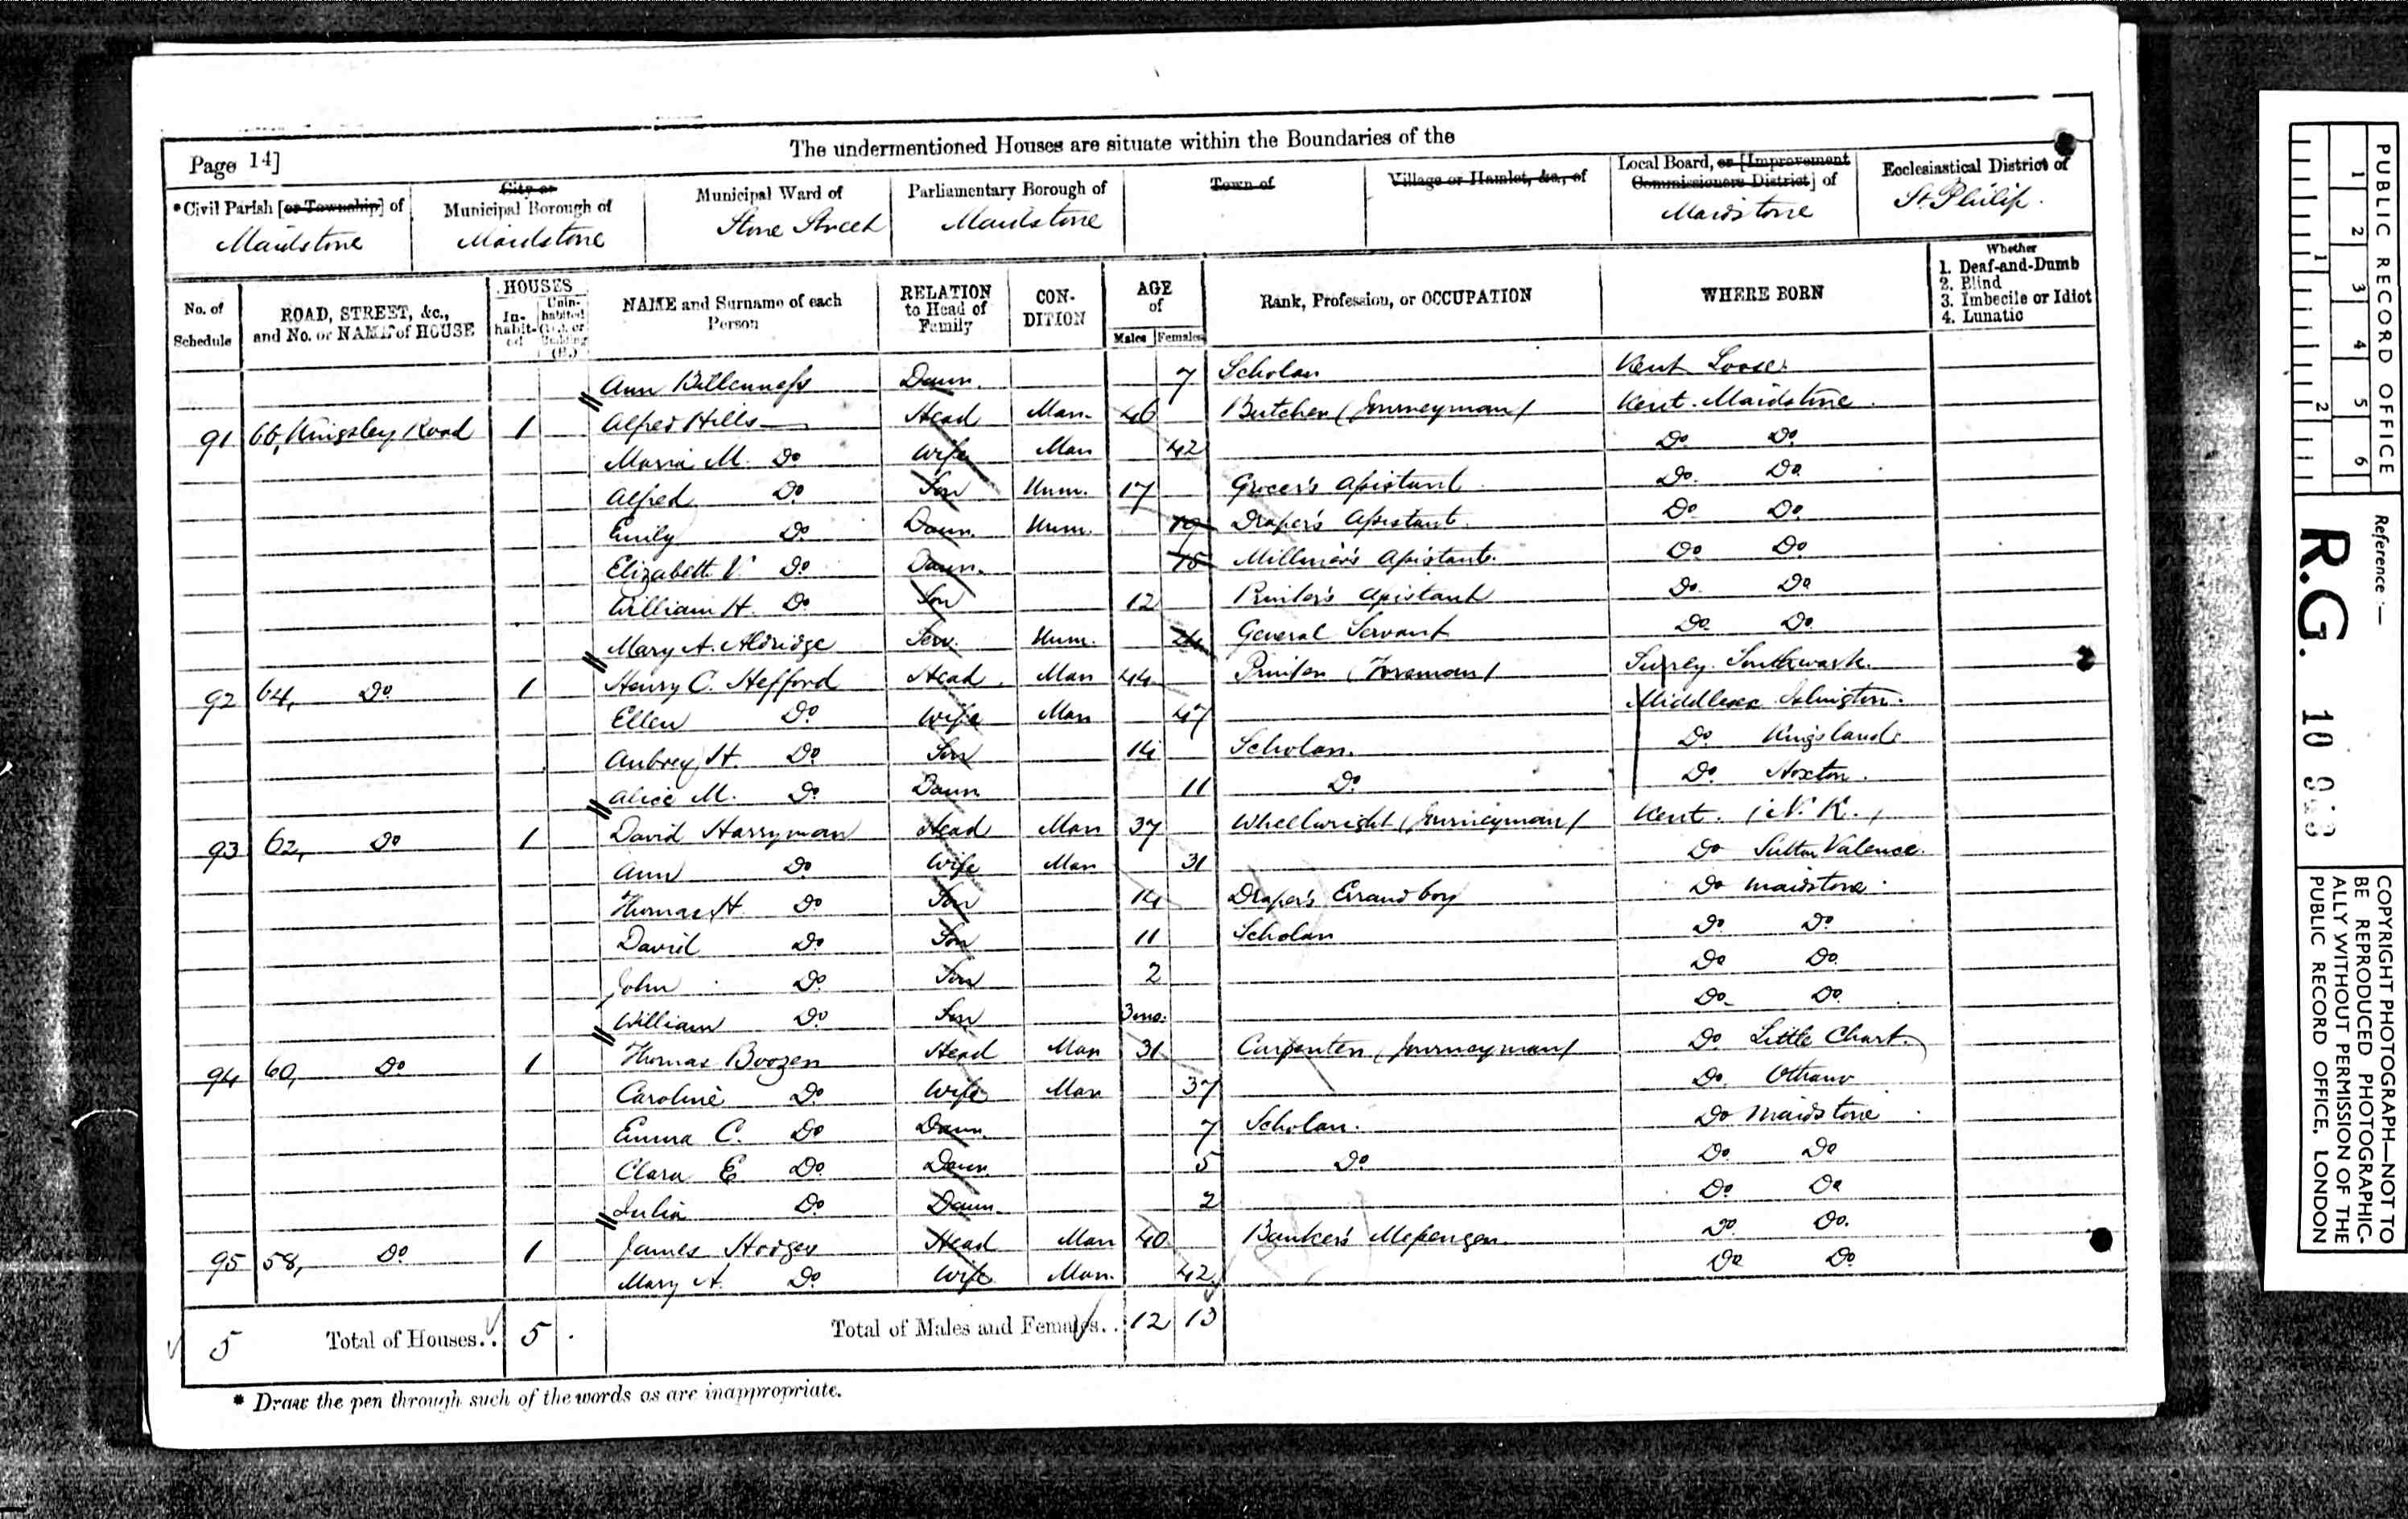 The undermentioned Houses are situate within the Boundaries of the
Page 14]
*Civil Parish [or Township] of Maidstone
City or Municipal Borough of Maidstone
Municipal Ward of Stone Street
Parliamentary Borough of Maidstone
Town of
Village or Hamlet, &c., of
Local Board, or [Improvement Commissioners District] of Maidstone
Ecclesiastical District of St. Philip.
No. of Schedule
ROAD, STREET, &c., and No. or NAME of HOUSE
HOUSES
Inhabited
Uninhabited (U.), or Building (B.)
NAME and Surname of each Person
RELATION to Head of Family
CONDITION
AGE of
Males Females
Rank, Profession, or OCCUPATION
WHERE BORN
Whether
1. Deaf-and-Dumb
2. Blind
3. Imbecile or Idiot
4. Lunatic
Ann Daur. 7 Scholar Kent Loose.
91 66, Kingsley Road 1 Alfred Hills Head Mar. 46 Butcher (Journeyman) Kent. Maidstone
Maria M. Do. Wife Mar 42 Do. Do.
Alfred Do. Son Unm. 17 Grocer's Assistant Do. Do.
Emily Do. Daur. Unm. 19 Draper's Assistant. Do. Do.
Elizabeth V. Do. Daur. 15 Milliner's Assistant. Do. Do
William H. Do. Son 12 Printer's Assistant Do. Do
Mary A. Aldridge Serv. Unm. General Servant Do. Do.
92 64, Do. 1 Henry C. Hefford Head. Mar 44 Printer (Foreman) Surrey. Southwark.
Ellen Do. Wife Mar 47 Middlesex Islington.
Aubrey H. Do. Son 14 Scholar. Do. Kingsland.
Alice M. Do. Daur. 11 Do. Do. Hoxton.
93 62, Do 1 David Harryman Head Mar 37 Wheelwright (Journeyman) Kent. (N. K.)
Ann Do. Wife Mar 31 Do Sutton Valence.
Thomas H. Do Son 14 Draper's Errand boy Do Maidstone
David Do Son 11 Scholar Do Do.
John Do Son 2 Do Do.
William Do. Son 3mo. Do. Do.
94 60, Do 1 Thomas Boozer Head Mar 31 Carpenter (Journeyman) Do. Little Chart.
Caroline Do. Wife Mar 37 Do. Otham
Emma C. Do Daur. 7 Scholar. Do Maidstone
Clara E. Do. Daur. 5 Do Do. Do
Julia Do. Daur. 2 Do. Do
95 58, Do. 1 James Hodges Head Mar 40 Banker's Messenger Do. Do.
Mary A. Do. Wife Mar. 42 Do Do.
5 Total of Houses.. 5 Total of Males and Females.. 12 13
* Draw the pen through such of the words as are inappropriate.
PUBLIC RECORD OFFICE
1 2 3 4 5 6
1 2
Reference :—
R.G. 10
COPYRIGHT PHOTOGRAPH—NOT TO
BE REPRODUCED PHOTOGRAPHIC-
ALLY WITHOUT PERMISSION OF THE
PUBLIC RECORD OFFICE, LONDON